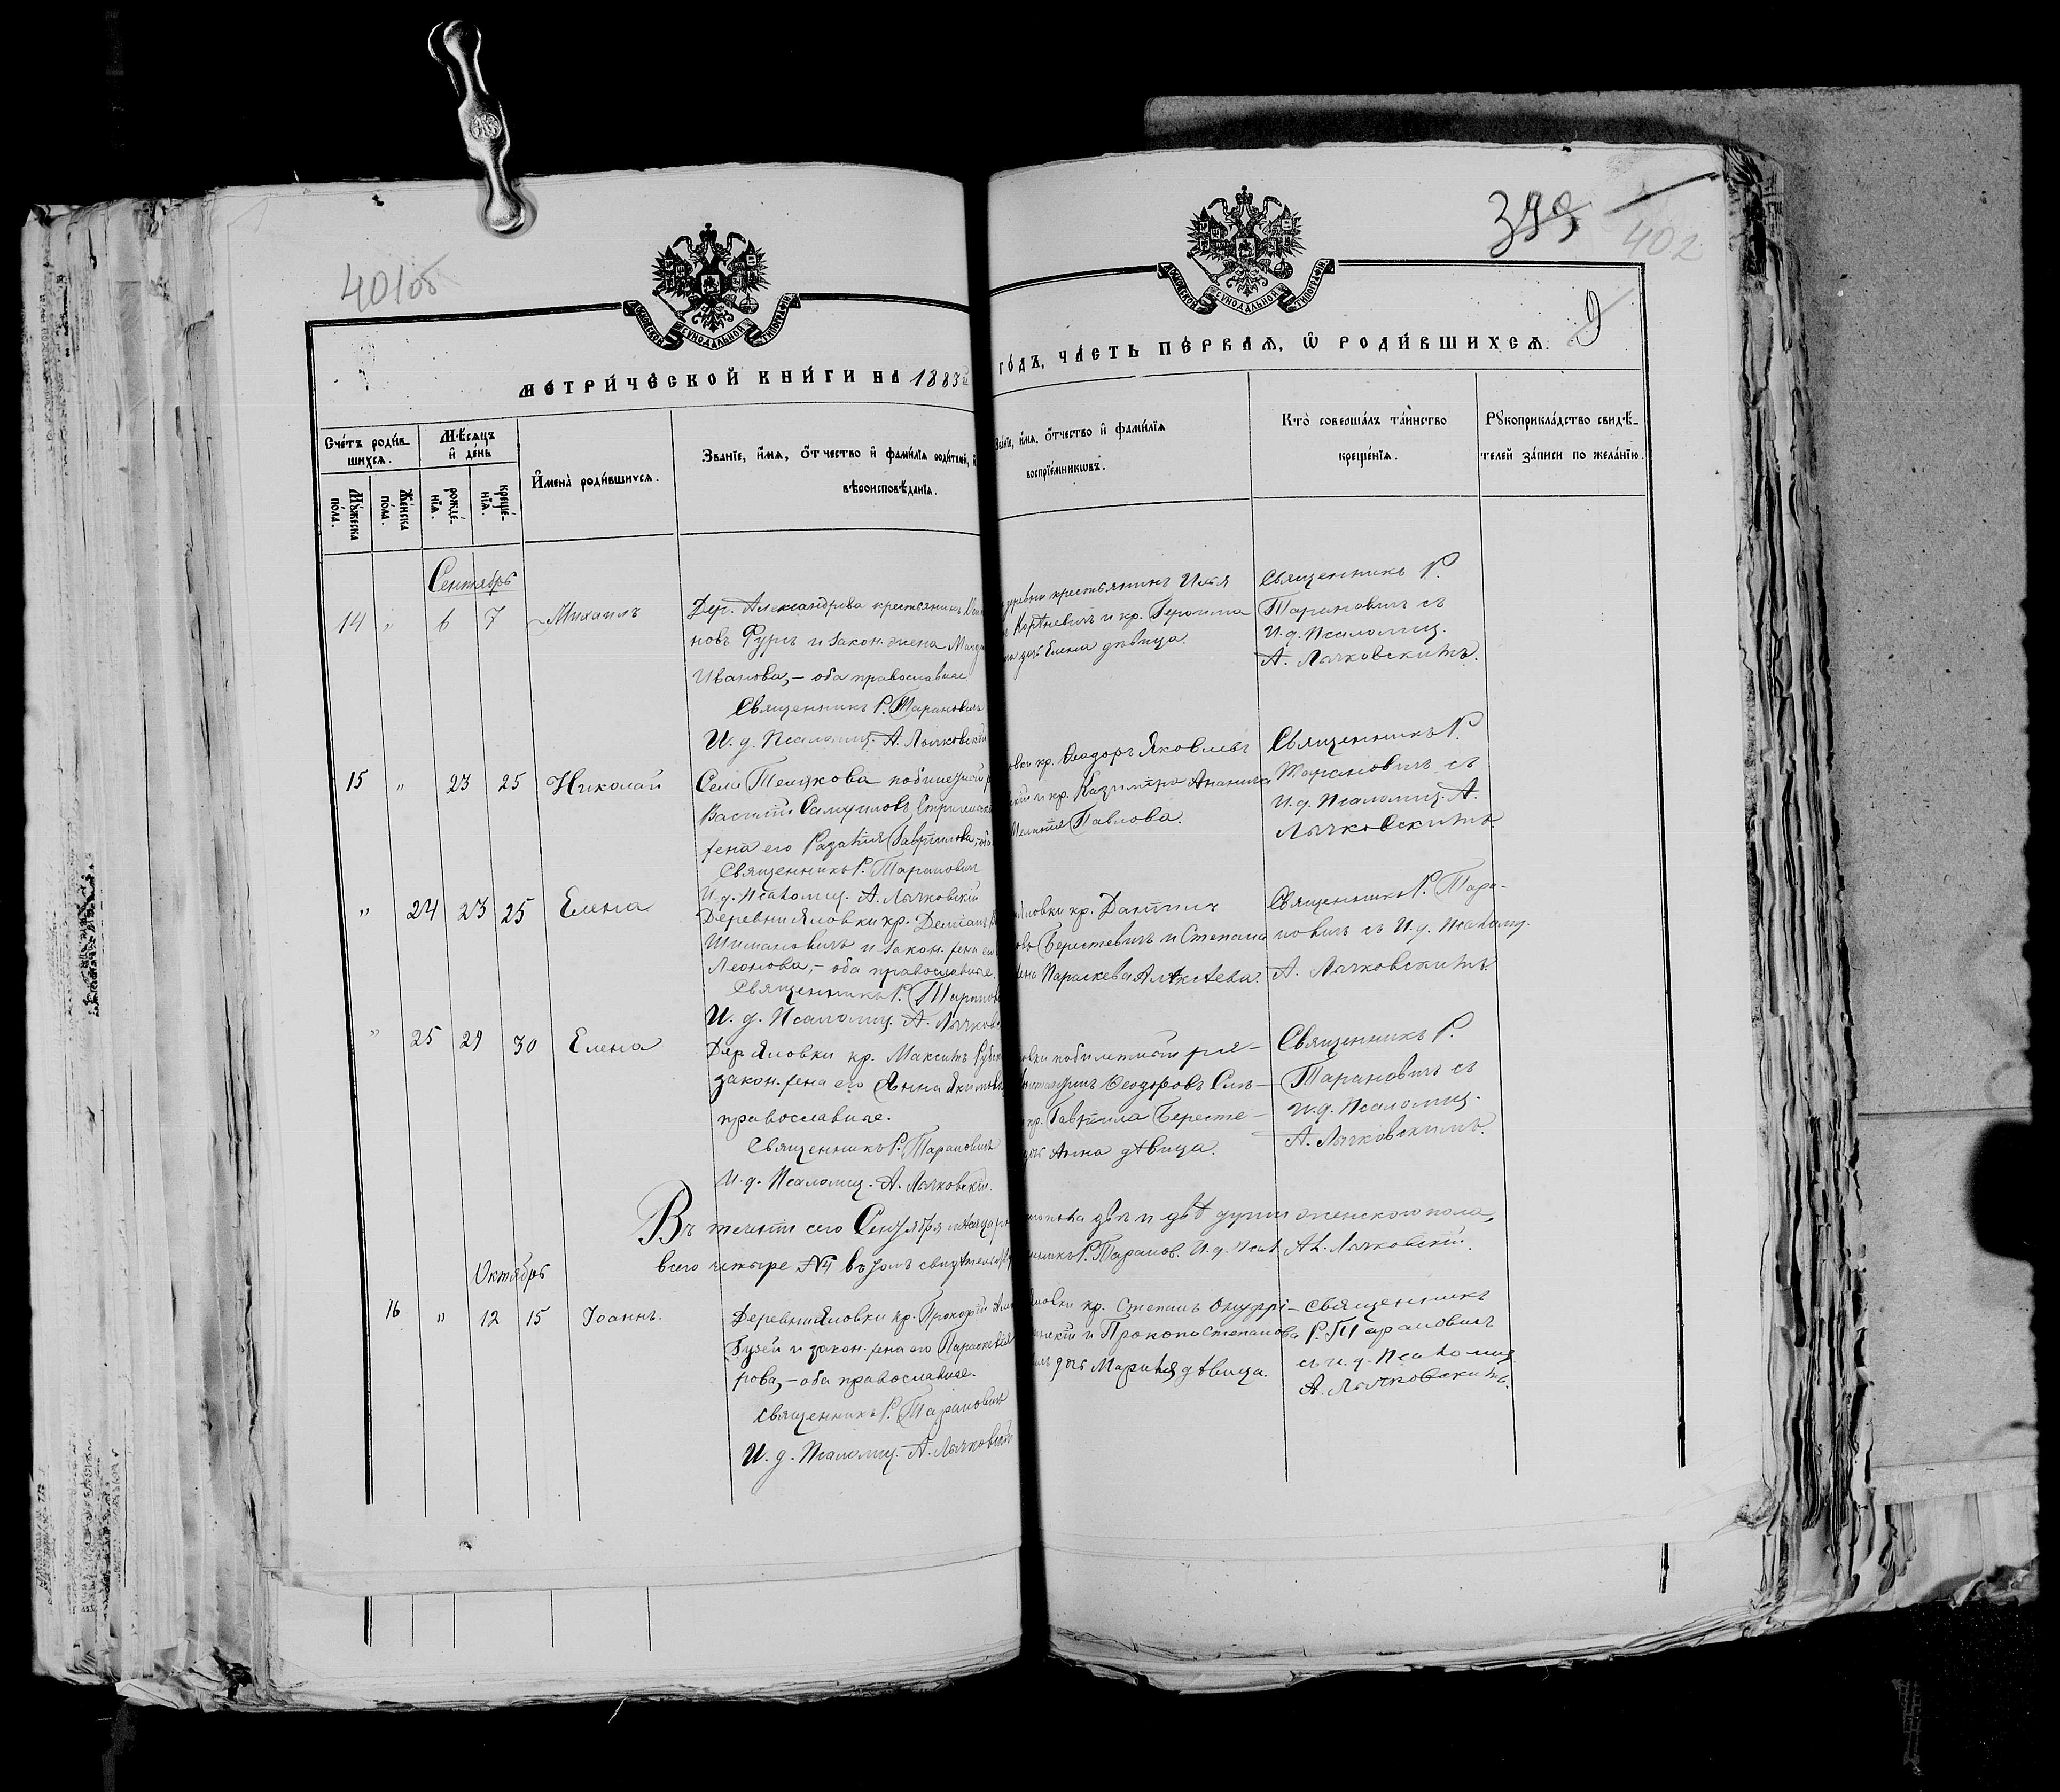 399
402
40105
9
МОСКОВСКОЙ СѴНОДАЛЬНОЙ ТИПОГРАФІИ
МОСКОВСКОЙ СѴНОДАЛЬНОЙ ТИПОГРАФІИ
МЕТРИ́ЧЕСКОЙ КНИ́ГИ НА 1883 й
ГО́ДЪ, ЧА́СТЬ ПЕ́РВАѦ, Ѡ҆ РОДИ́ВШИХСѦ.
Сче́тъ роди́вшихсѧ.
Мꙋ́жеска по́ла.
Же́нска по́ла.
Мѣ́сѧцъ и҆ де́нь
рожде́нїѧ.
креще́нїѧ.
И҆мена̀ роди́вшихсѧ.
Зва́нїе, и҆́мѧ, ѻ҆́тчество и҆ фами́лїѧ роди́телей,
вѣроисповѣ́данїѧ.
Зва́нїе, и҆́мѧ, ѻ҆́тчество и҆ фами́лїѧ
воспрїе́мникѡвъ.
Кто̀ соверша́лъ та́инство
креще́нїѧ.
Рꙋкоприкла́дство свидѣ́телей за́писи по жела́нїю.
Сентябрь
14 " 6 7 Михаилъ
Дер. Александрова крестьянинъ
новъ Фурсъ и закон. жена
Иванова, – оба православные
Священникъ Р. Тарановичъ
И. д. Псаломщ. А. Лычковскій
деревни крестьянинъ Илья
Корѣневичъ и кр. Геронима
дочь Елена дѣвица.
Священникъ Р.
Тарановичъ съ
И. д. Псаломщ.
А. Лычковскимъ.
15 " 23 25 Николай
Села
Василій Самуиловъ
жена его Гавріилова,
Священникъ Р. Тарановичъ
И. д. Псаломщ. А. Лычковскій
кр. Ѳеодоръ Яковлевъ
и кр. Казиміра
Павлова.
Священникъ Р.
Тарановичъ съ
И. д. Псаломщ. А.
Лычковскимъ.
" 24 23 25 Елена
Деревни Яловки кр. Деміанъ
Шимановичъ и закон. жена его
Леонова, – оба православные.
Священникъ Р. Таранов
И. д. Псаломщ. А. Лычковс
Яловки кр. Даніилъ
Берестевичъ и Степана
жена Параскева Алексѣева.
Священникъ Р. Тара-
новичъ съ И. д. Псаломщ.
А. Лычковскимъ.
" 25 29 30 Елена
Дер Яловки кр. Максимъ
закон. жена его Анна
православные.
Священникъ Р. Тарановичъ
И. д. Псаломщ. А. Лычковскій.
Ѳеодоровъ
кр. Гавріила Бересте-
дочь Анна дѣвица.
Священникъ Р.
Тарановичъ съ
И. д. Псаломщ.
А. Лычковскимъ.
Въ теченіи сего Сентября мѣсяца
пола два и двѣ души женскаго пола,
всего четыре №4 въ томъ свидѣтельств
Р. Таранов. И. д. Псал. Ал. Лычковскій.
Октябрь
16 " 12 15 Іоаннъ.
Деревни Яловки кр. Прокопій
Гузей и закон. жена его Параскевія
рова, – оба православные.
Священникъ Р. Тарановичъ
И. д. Псаломщ. А. Лычковскій
Яловки кр. Степанъ Онуфрі-
и Прокопа Степанова
дочь Марѳія дѣвица.
Священникъ
Р. Тарановичъ
съ и. д. Псаломщ
А. Лычковскимъ.